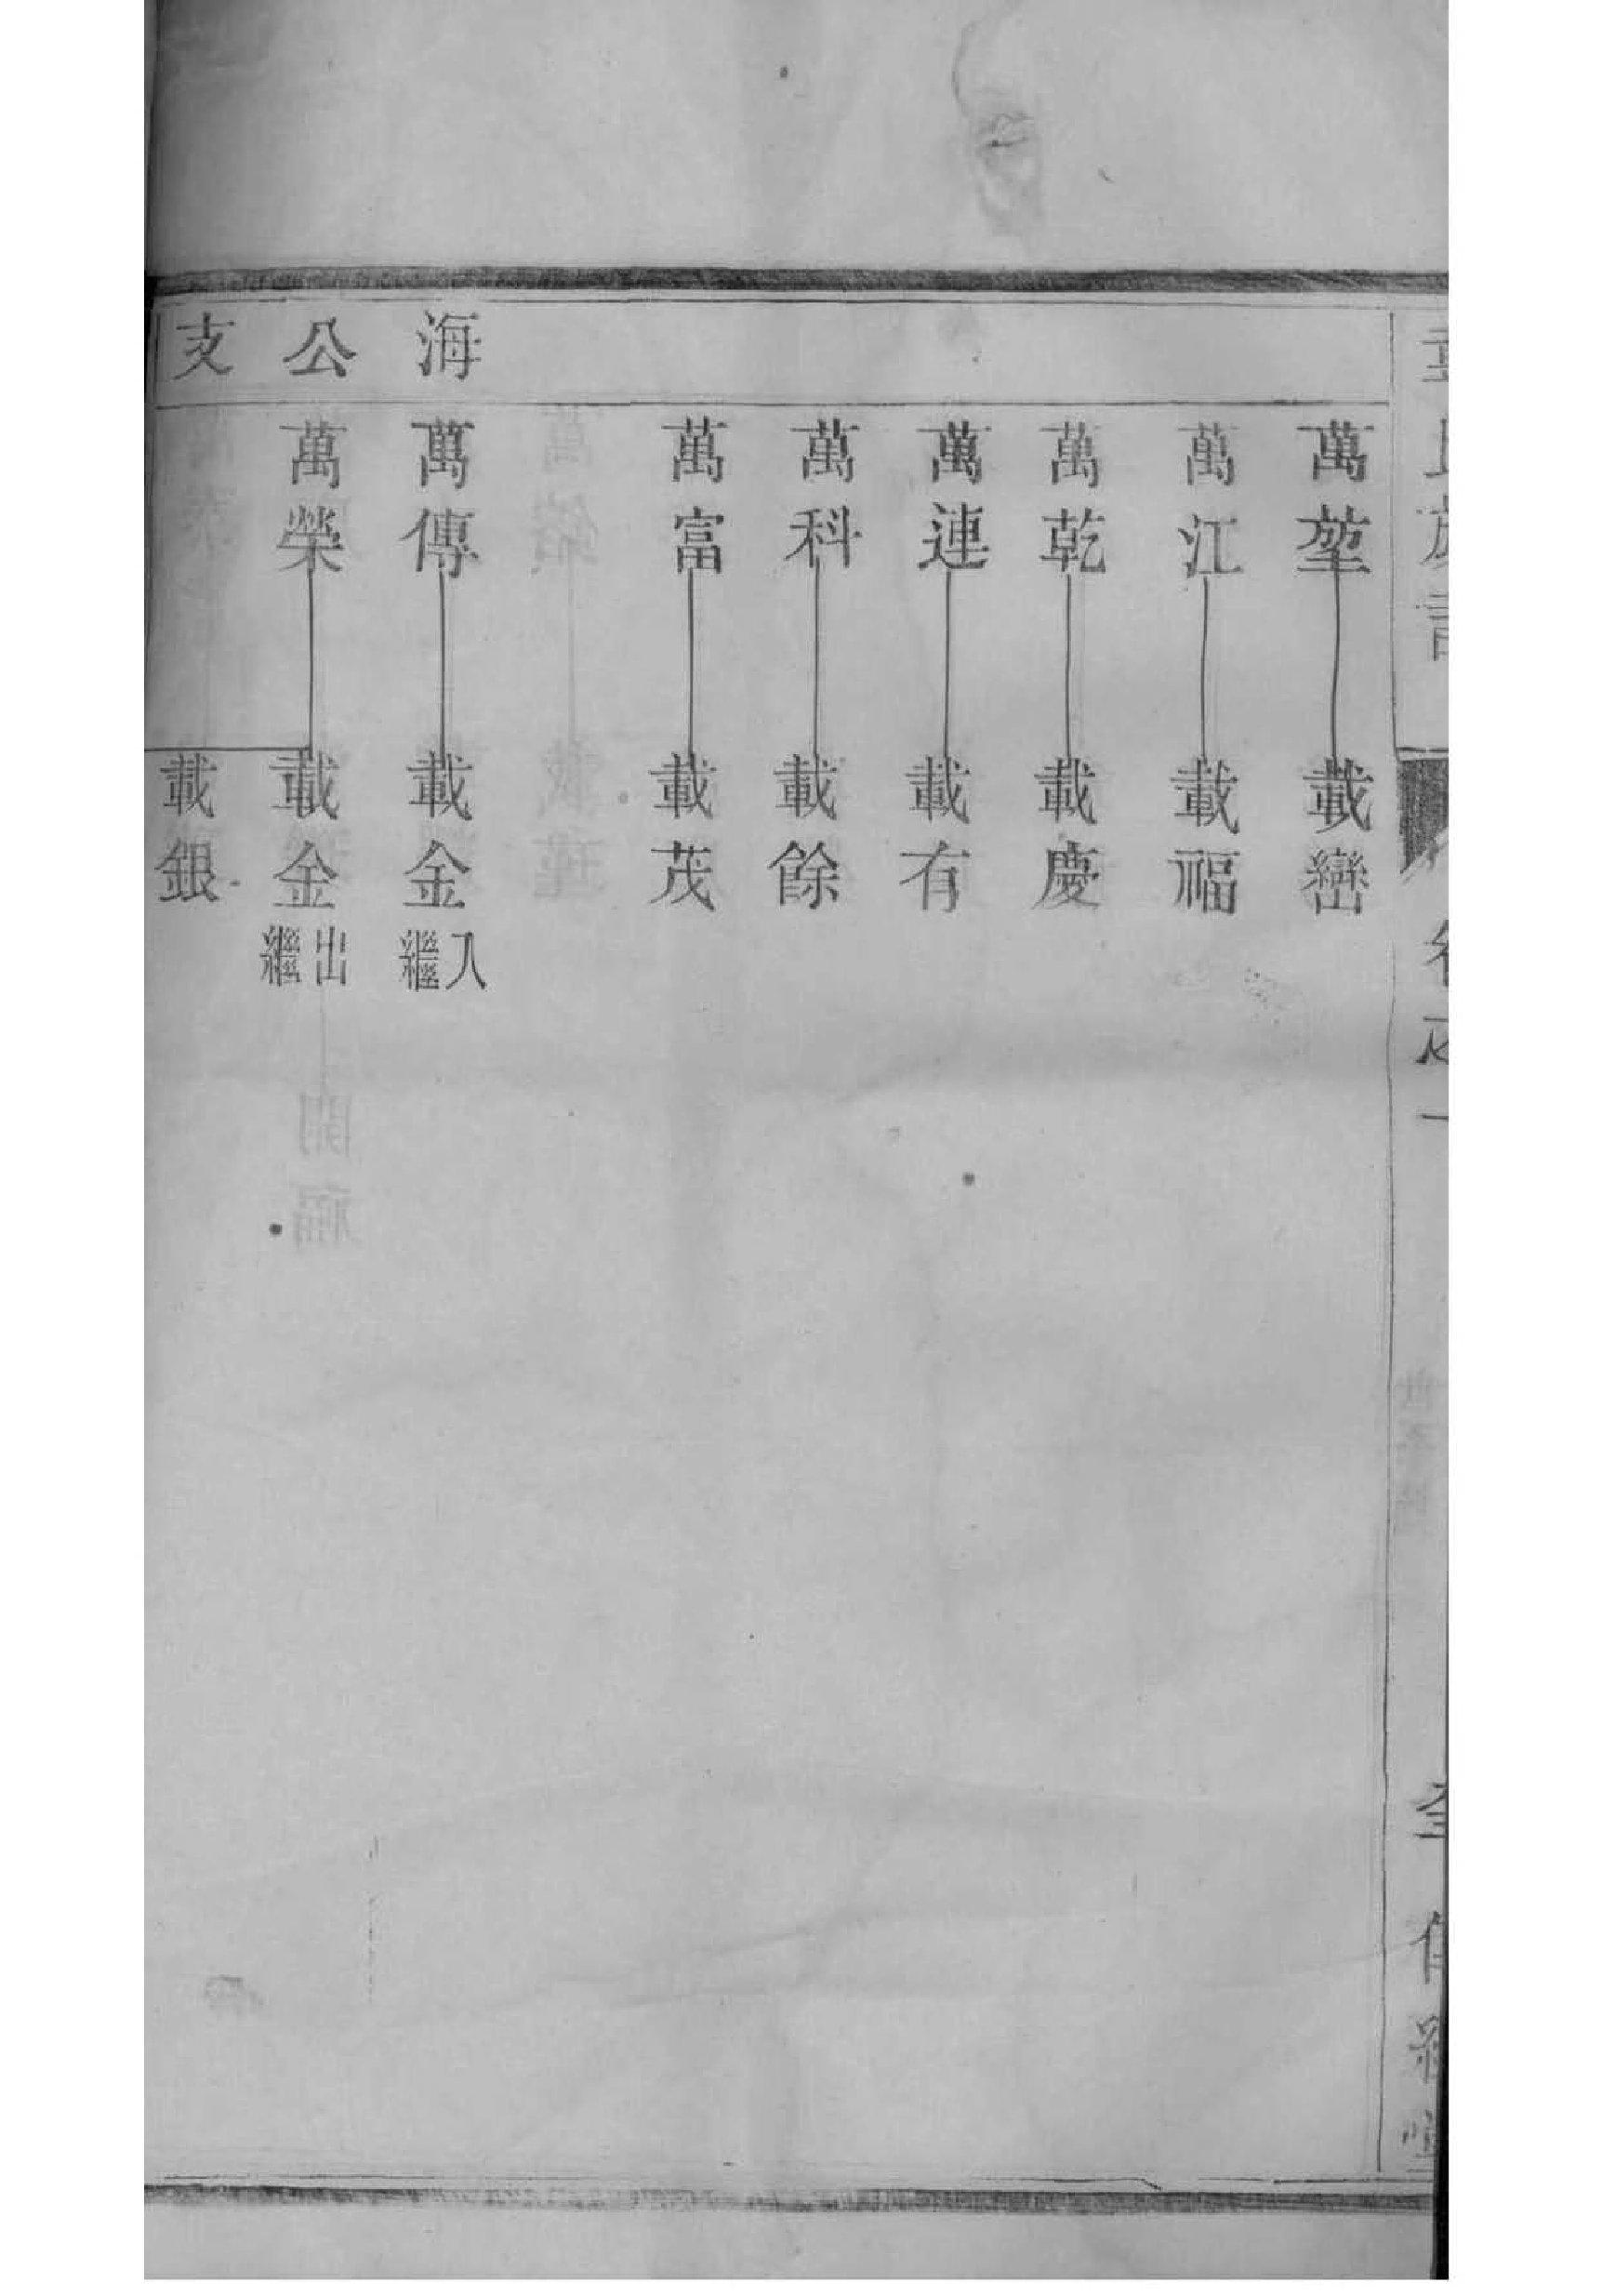 海公支
萬堃
載巒
萬江
載福
萬乾
載慶
萬連
載有
萬科
載餘
萬富
載茂
萬傳
載金入繼
萬榮
載金出繼
載銀